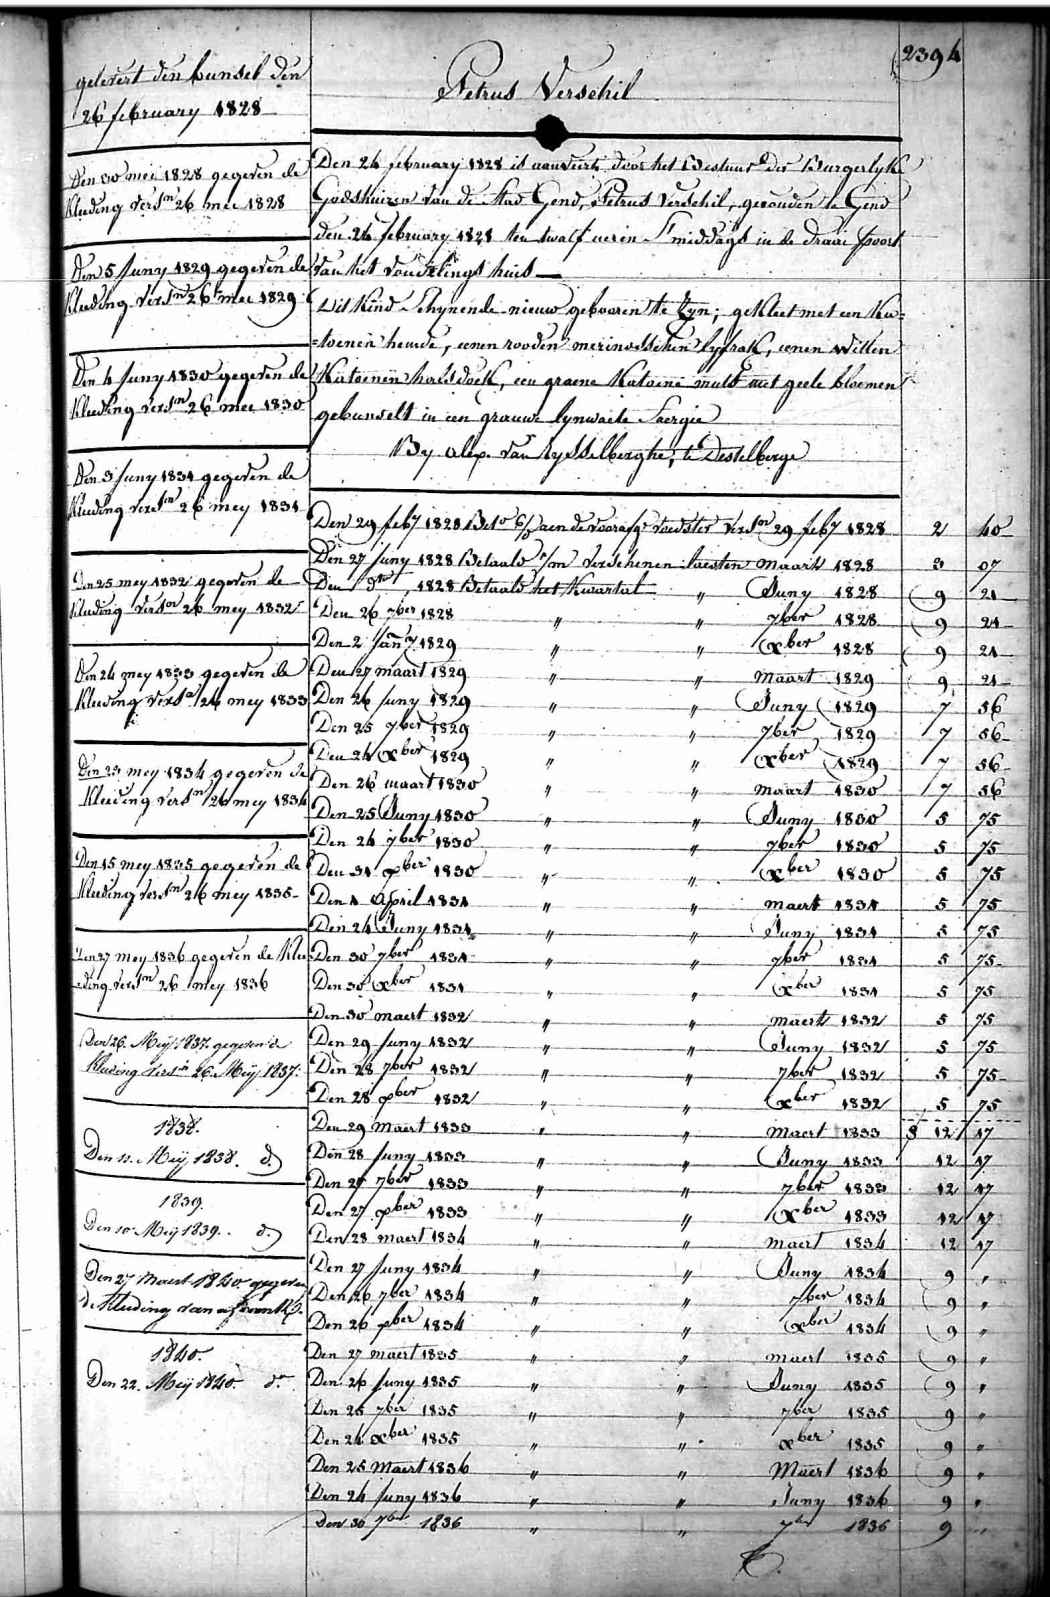 2394
Petrus Verschil
gelevert den bunsel den
26 february 1828
Den 30 mei 1828 gegeven de
Kleeding versn 26 mei 1828
Den 5 Juny 1829 gegeven de
Kleeding versn 26 mei 1829
Den 4 Juny 1830 gegeven de
Kleeding versn 26 mei 1830
Den 3 Juny 1831 gegeven de
Kleeding versn 26 mey 1831
Den 25 mey 1832 gegeven de
Kleeding versn 26 mey 1832
Den 24 mey 1833 gegeven de
Kleeding versn 26 mey 1833
Den 23 mey 1834 gegeven de
Kleeding versn 26 mey 1834
Den 15 mey 1835 gegeven de
Kleeding versn 26 mey 1835
Den 27 mey 1836 gegeven de Klee
eding versn 26 mey 1836
Den 26. Meij 1837. gegeven de
Kleeding versn 26 Meij 1837.
1838.
Den 11. Meij 1838. d.
1839.
Den 10 Meij 1839. d.
Den 27 Maert 1840 gegeven
de Kleeding van
1840.
Den 22. Meij 1840. do
Den 26 february 1828 is aanveirt door het Bestuur der Burgerlyke
Godshuizen van de Stad Gend, Petrus Verschil, gevonden te Gend
den 26 february 1828 ten twalf ueren S'middags in de draai spoort
van het vondelings huis
Dit Kind schynende nieuw gebooren te zyn; gekleet met een Ka=
=toenen hemde, eenen rooden merinosschen lyfrok, eenen witten
Katoenen halsdoek, een groene Katoene muts met geele bloemen
gebunselt in een grauwe lynwaete Saergie
By Alex. van Rysselberghe, te Destelberge
Den 29 feby 1828 Bet. aen de voorafge voedster versn 29 feby 1828 2 40
Den 27 Juny 1828 Betaald verschenen laesten maart 1828 3 07
Den do 1828 Betaald het Kwartal " Juny 1828 9 21
Den 26 7ber 1828 " " 7ber 1828 9 21
Den 2 Jany 1829 " " Xber 1828 9 21
Den 27 maart 1829 " " maart 1829 9 21
Den 26 Juny 1829 " " Juny 1829 7 56
Den 25 7ber 1829 " " 7ber 1829 7 56
Den 24 Xber 1829 " " Xber 1829 7 56
Den 26 maart 1830 " " maart 1830 7 56
Den 25 Juny 1830 " " Juny 1830 5 75
Den 24 7ber 1830 " " 7ber 1830 5 75
Den 31 Xber 1830 " " Xber 1830 5 75
Den 1 April 1831 " " maert 1831 5 75
Den 24 Juny 1831 " " Juny 1831 5 75
Den 30 7ber 1831 " " 7ber 1831 5 75
Den 30 Xber 1831 " " Xber 1831 5 75
Den 30 maert 1832 " " maert 1832 5 75
Den 29 Juny 1832 " " Juny 1832 5 75
Den 28 7ber 1832 " " 7ber 1832 5 75
Den 28 Xber 1832 " " Xber 1832 5 75
Den 29 Maert 1833 " " Maert 1833 12 17
Den 28 Juny 1833 " " Juny 1833 12 17
Den 27 7ber 1833 " " 7ber 1833 12 17
Den 27 Xber 1833 " " Xber 1833 12 17
Den 28 maert 1834 " " maert 1834 12 17
Den 27 Juny 1834 " " Juny 1834 9 "
Den 26 7ber 1834 " " 7ber 1834 9 "
Den 26 Xber 1834 " " Xber 1834 9 "
Den 27 maert 1835 " " maert 1835 9 "
Den 26 Juny 1835 " " Juny 1835 9 "
Den 25 7ber 1835 " " 7ber 1835 9 "
Den 24 Xber 1835 " " Xber 1835 9 "
Den 25 Maert 1836 " " Maert 1836 9 "
Den 24 Juny 1836 " " Juny 1836 9 "
Den 30 7ber 1836 " " 7ber 1836 9 "